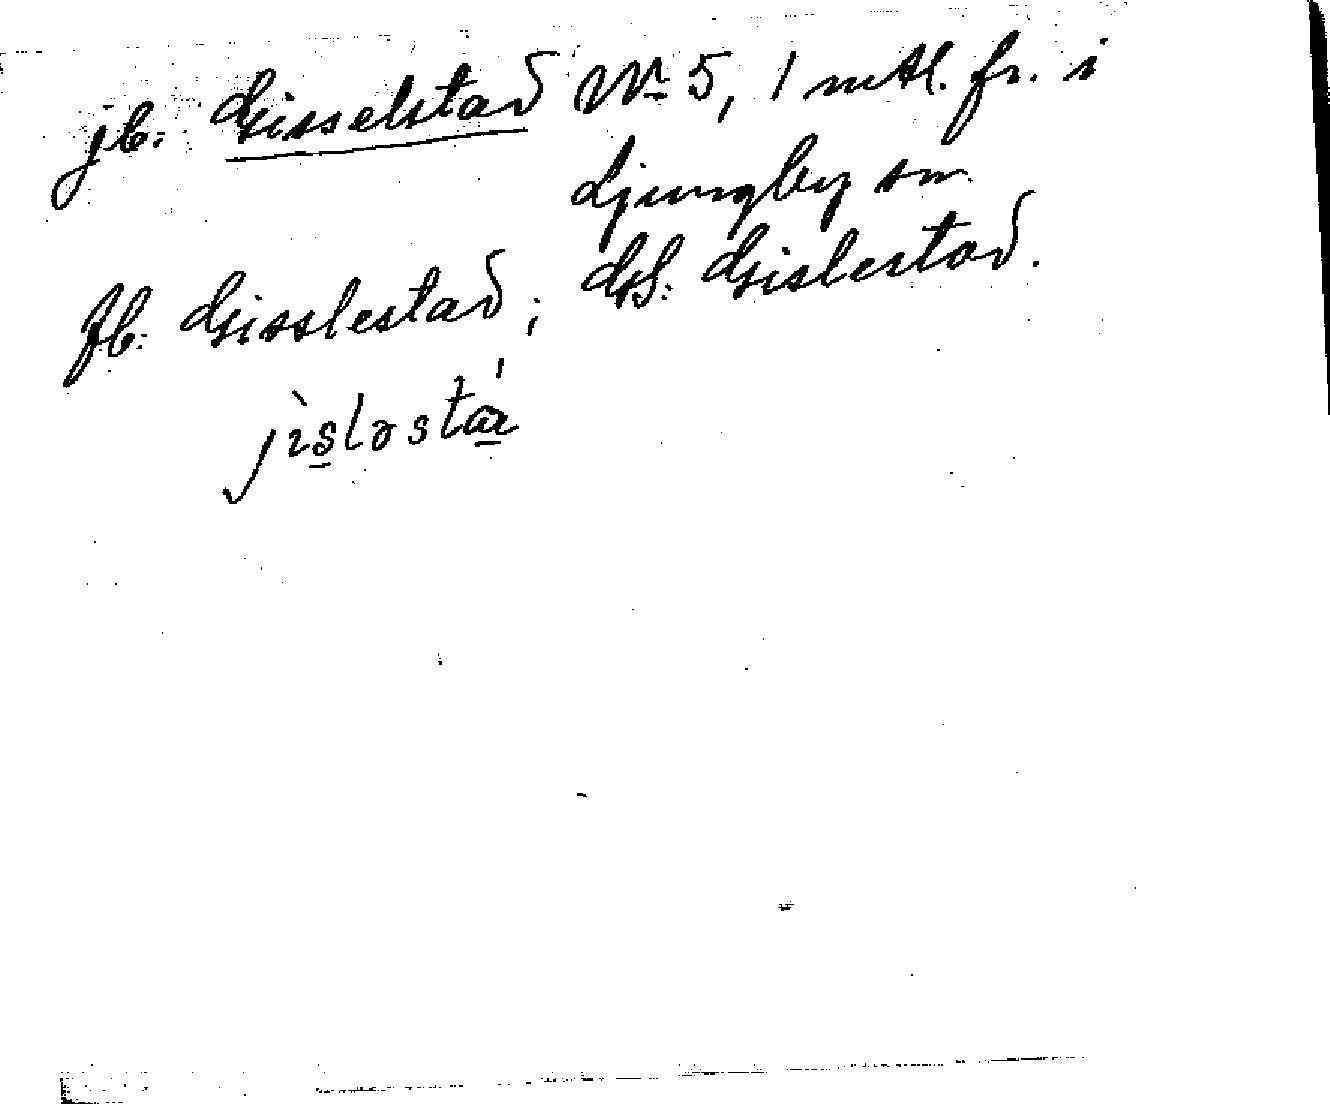 jb. Gisselstad No 5, 1 mtl. fr. i
Ljungby sn
fb. Gisslestad; GS: Gislestad.
jìslǝstá